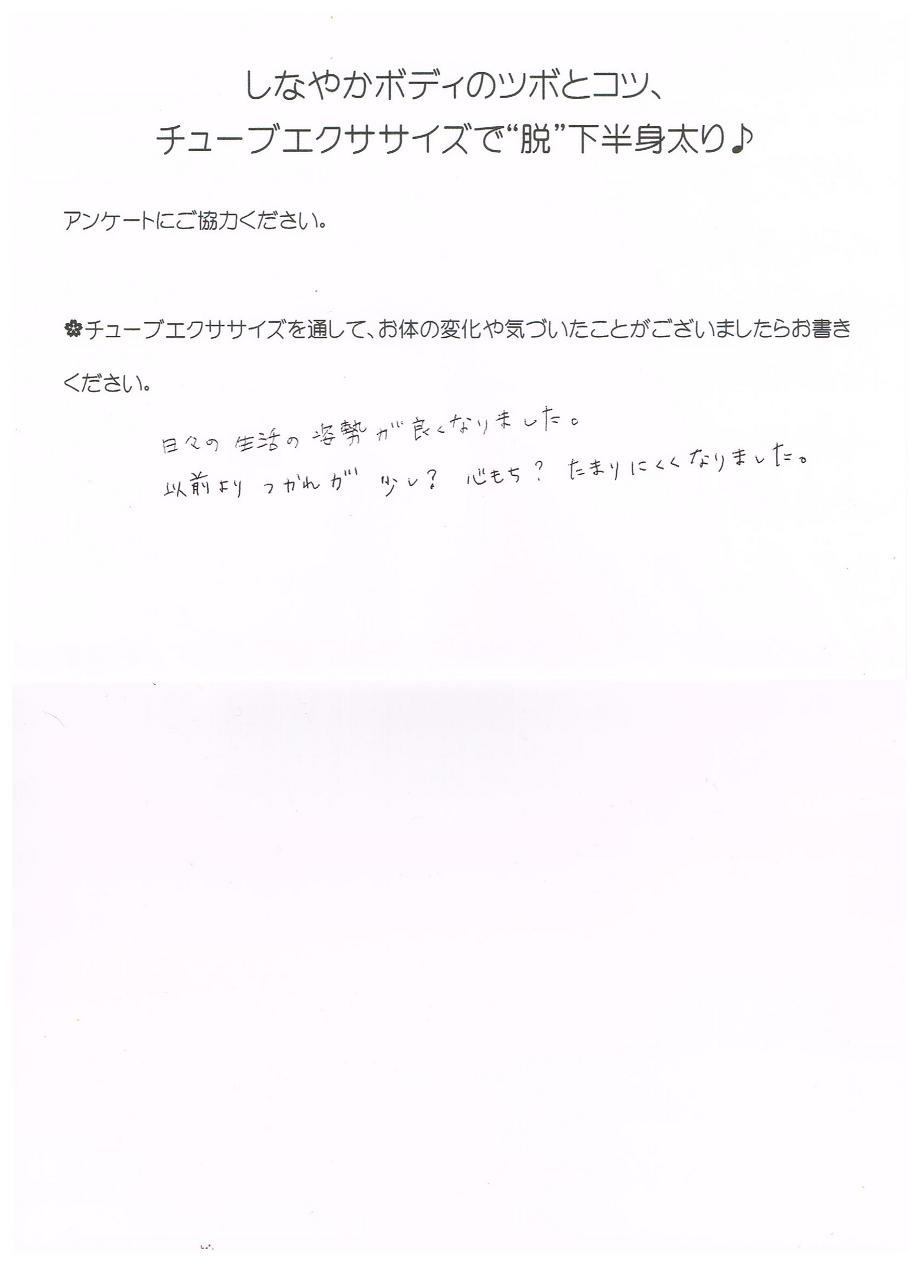 しなやかボディのツボとコツ、
チューブエクササイズで“脱”下半身太り♪
アンケートにご協力ください。
✿チューブエクササイズを通して、お体の変化や気づいたことがございましたらお書き
ください。
日々の生活の姿勢が良くなりました。
以前よりつかれが少し？心もち？たまりにくくなりました。